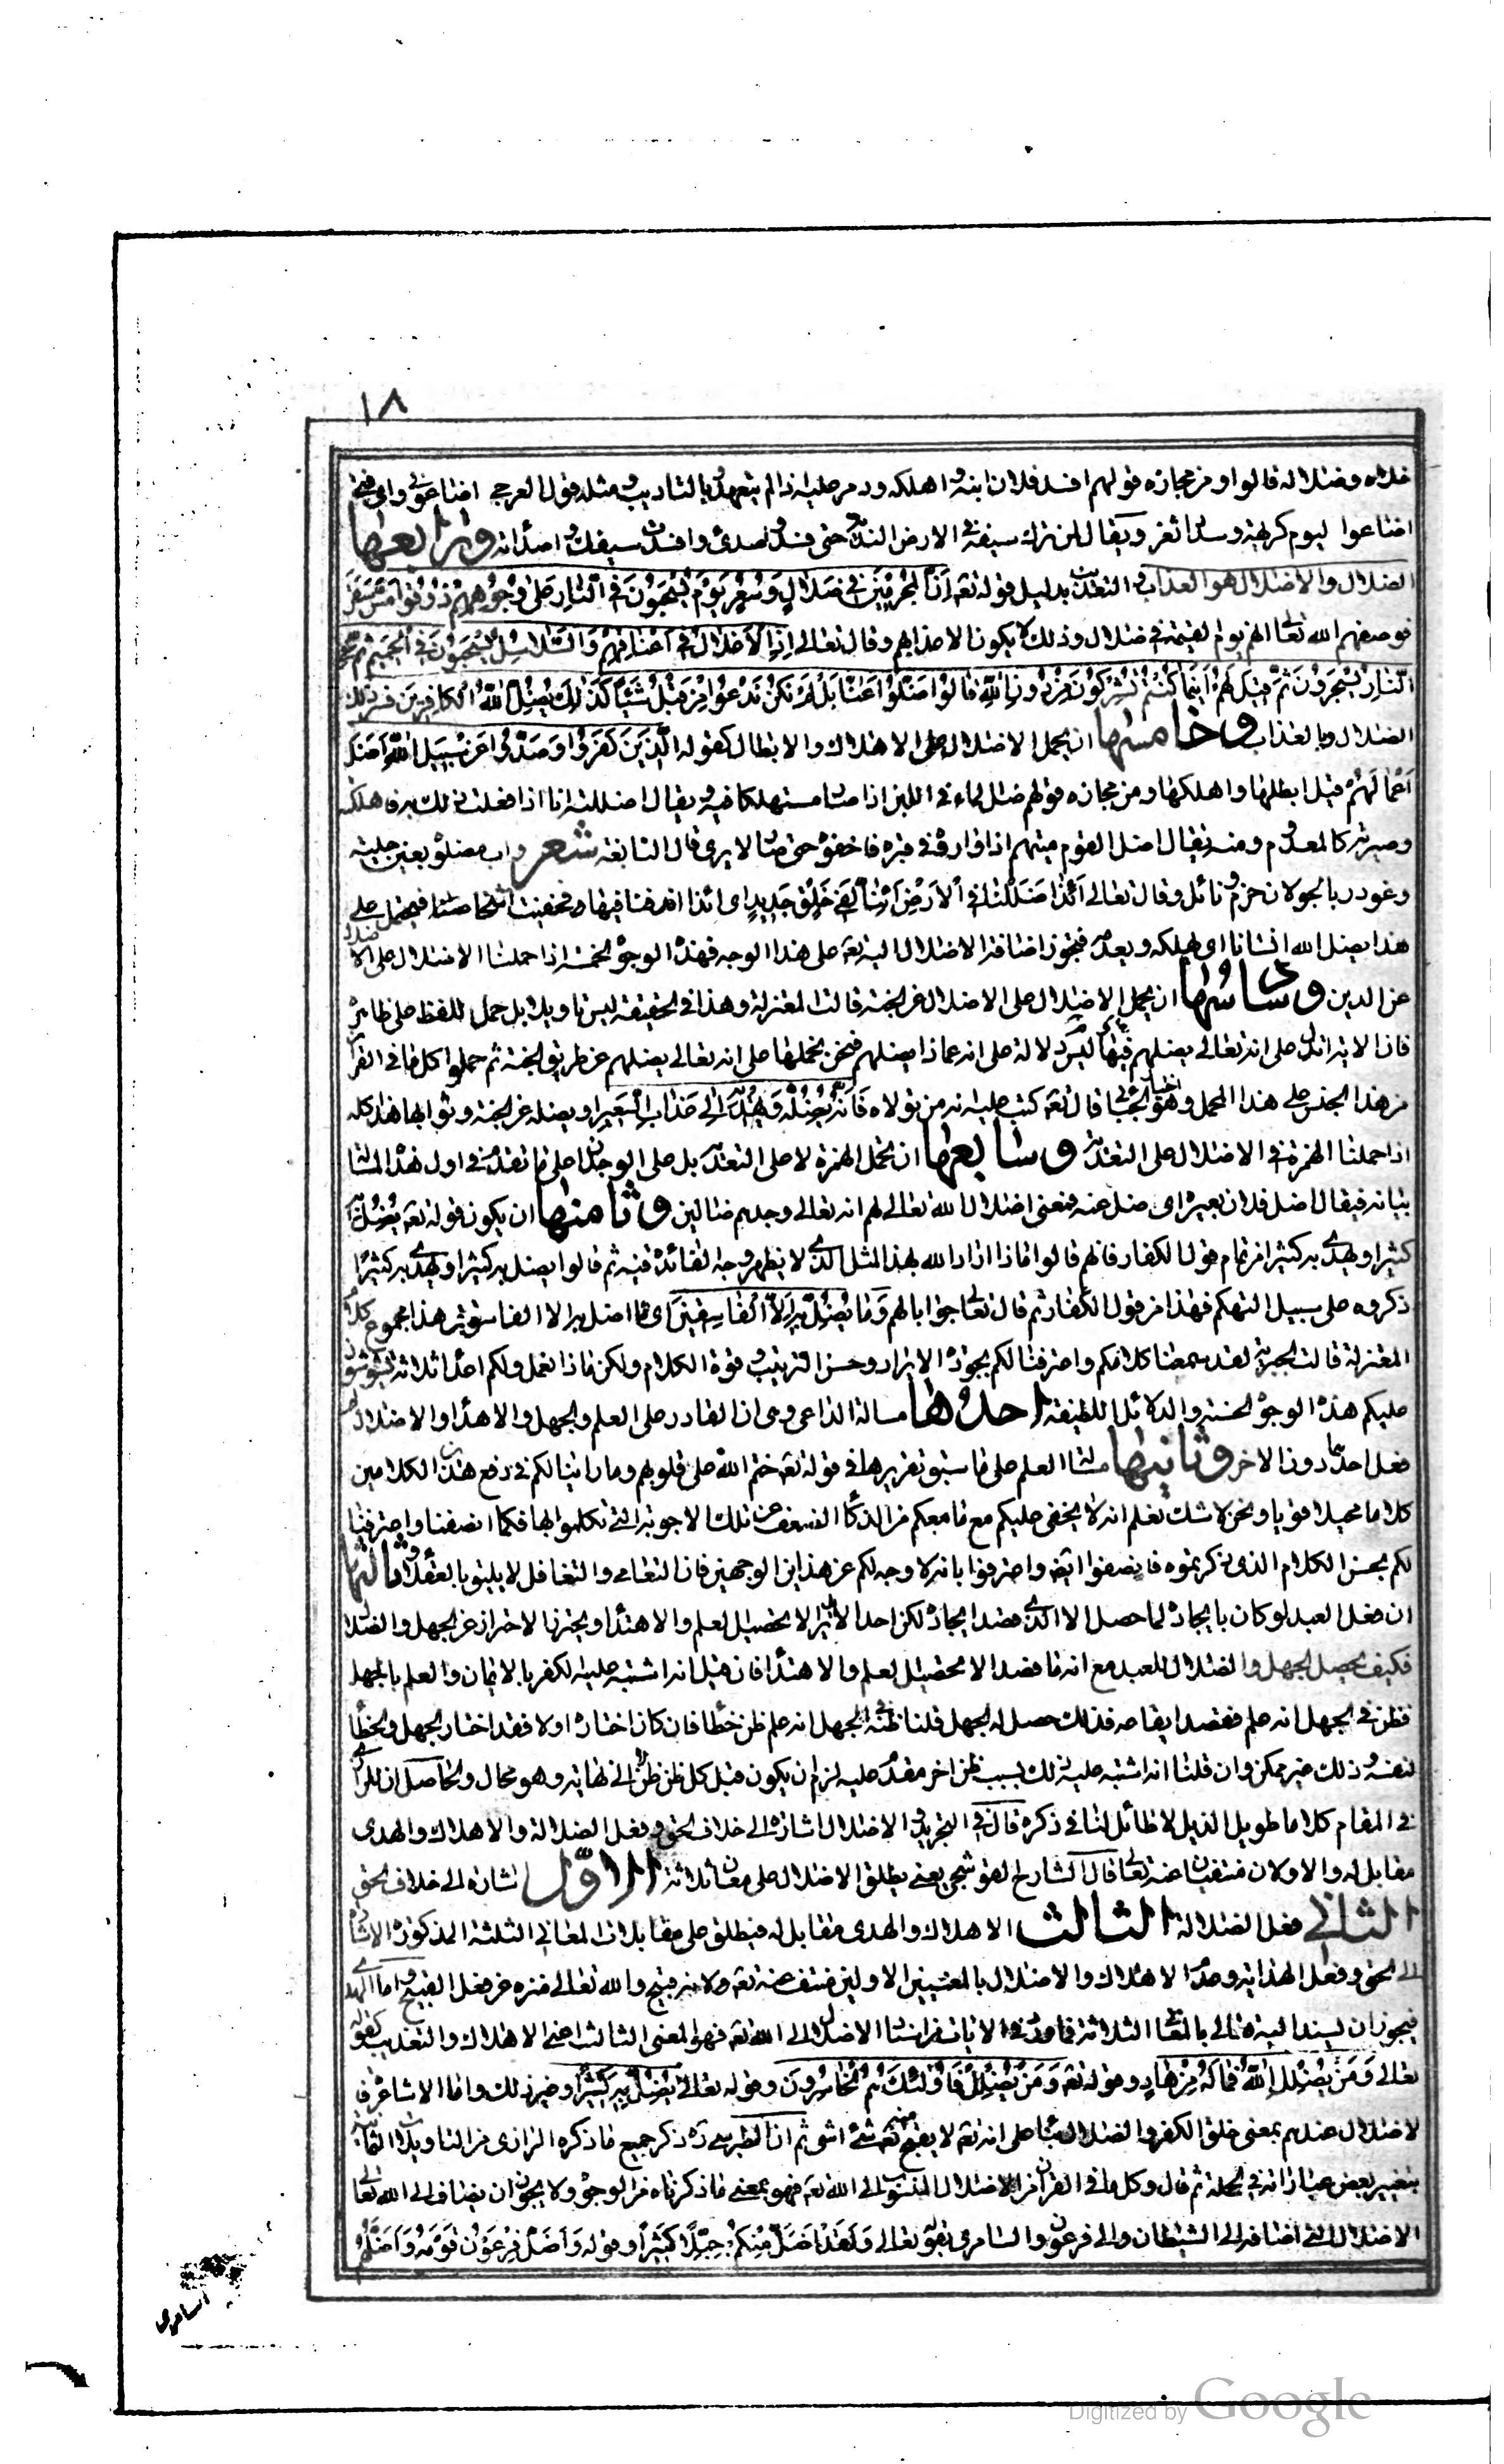 ١٨
خلاه وضلاله قالوا ومن مجازه قولهم افسد فلان ابنه واهلكه ودمر عليه اذا لم يتعهده بالتاديب ومثله قول العرجي اضاعوني واي فتى
اضاعوا ليوم كريهة وسداد ثغر ويقال لمن ترك سيفه في الارض الندية حتى فسد وصدئ وافسدت سيفك واصدأته ورابعها
الضلال والاضلال هو العذاب والتعذيب بدليل قوله تعه اِنَّ الْمُجْرِمِينَ فِي ضَلَالٍ وَسُعُرٍ يَوْمَ يُسْحَبُونَ فِي النَّارِ عَلَى وُجُوهِهِمْ ذُوقُوا مَسَّ سَقَرَ
فوصفهم الله تعالى انهم يوم القيمة في ضلال وذلك لا يكون الا عذابهم وقال تعالى اِذِ الْاَغْلَالُ فِي اَعْنَاقِهِمْ وَالسَّلَاسِلُ يُسْحَبُونَ فِي الْحَمِيمِ ثُمَّ فِي
النَّارِ يُسْجَرُونَ ثُمَّ قِيلَ لَهُمْ اَيْنَمَا كُنْتُمْ تُشْرِكُونَ مِنْ دُونِ اللهِ قَالُوا ضَلُّوا عَنَّا بَلْ لَمْ نَكُنْ نَدْعُوا مِنْ قَبْلُ شَيْئًا كَذَلِكَ يُضِلُّ اللهُ الْكَافِرِينَ فسر ذلك
الضلال بالعذاب وخامسها ان يحمل الاضلال على الاهلاك والابطال كقوله الَّذِينَ كَفَرُوا وَصَدُّوا عَنْ سَبِيلِ اللهِ اَضَلَّ
اَعْمَالَهُمْ قيل ابطلها واهلكها ومن مجازه قولهم ضل الماء في اللبن اذا صار مستهلكا فيه ويقال اضللته انا اذا فعلت ذلك به فاهلكته
وصيرته كالمعدوم ومنه يقال اضل القوم ميتهم اذا واروه في قبره فاخفوه حتى صار لا يرى قال النابغة شعر واب مضلوه بعين جلية
وغودر بالجولان حزم ونائل وقال تعالى اَئِذَا ضَلَلْنَا فِي الْاَرْضِ اَئِنَّا لَفِي خَلْقٍ جَدِيدٍ اى ائذا اندفنا فيها وخفيت اشخاصنا فيحتمل على
هذا يضل الله انسانا اى يهلكه ويعدمه فتجوز اضافة الاضلال اليه تعه على هذا الوجه فهذه الوجوه الخمسة اذا حملنا الاضلال على الاضلال
عن الدين وسادسها ان يحمل الاضلال على الاضلال عن الجنة قالت المعتزلة وهذا في الحقيقة ليس تاويلا بل حمل اللفظ على ظاهره
فان الاية تدل على انه تعالى يضلهم وليس فيها دلالة على انه عماذا يضلهم فنحن نحملها على انه تعالى يضلهم عن طريق الجنة ثم حملوا كل ما في القرآن
من هذا الجنس على هذا المحمل وهو اختيار الجبائي قال تعه كتب عليه انه من تولاه فَاَنَّهُ يُضِلُّهُ وَيَهْدِيهِ اِلَى عَذَابِ السَّعِيرِ اى يضله عن الجنة وثوابها هذا كله
اذا حملنا الهمزة في الاضلال على التعدية وسابعها ان تحمل الهمزة لا على التعدية بل على الوجدان على ما تقدم في اول هذه المسئلة
بيانه فيقال اضل فلان بعيره اى ضل عنه فمعنى اضلال الله تعالى لهم انه تعالى وجدهم ضالين وثامنها ان يكون قوله تعه يُضِلُّ بِهِ
كثيرا ويهدي به كثيرا من تمام قول الكفار فانهم قالوا ماذا اراد الله بهذا المثل الذي لا يظهر وجه الفائدة فيه ثم قالوا يضل به كثيرا ويهدي به كثيرا
ذكروه على سبيل التهكم فهذا من قول الكفار ثم قال تعالى جوابا لهم وَمَا يُضِلُّ بِهِ اِلَّا الْفَاسِقِينَ اى ما اضل به الا الفاسق هذا مجموع كلام
المعتزلة قالت الجبرية لقد سمعنا كلامكم واعترفنا لكم بجودة الايراد وحسن الترتيب وقوة الكلام ولكن ماذا نعمل ولكم اعداء ثلاثة يشوشون
عليكم هذه الوجوه الحسنة والدلائل اللطيفة احدها مسالة الداعي وهى ان القادر على العلم والجهل والاهتداء والاضلال لم
فعل احدهما دون الاخر وثانيها مسئلة العلم على ما سبق تقريرها في قوله تعه ختم الله على قلوبهم وما راينا لكم في دفع هذين الكلامين
كلاما محيلا قويا ونحن لا شك نعلم انه لا يخفى عليكم مع ما معكم من الذكاء الضعف عن تلك الاجوبة التي تكلموا بها فكما انصفنا واعترفنا
لكم بحسن الكلام الذى ذكرتموه فانصفوا ايضه واعترفوا بانه لا وجه لكم عن هذين الوجهين فان التعامى والتغافل لا يليق بالعقلاء وثالثها
ان فعل العبد لو كان بايجاده لما حصل الا الذي قصد ايجاده لكن احدا لا يريد الا تحصيل العلم والاهتداء ويحترز كل الاحتراز عن الجهل والضلال
فكيف يحصل الجهل والضلال للعبد مع انه ما قصد الا تحصيل العلم والاهتداء فان قيل انه اشتبه عليه الكفر بالايمان والعلم بالجهل
فظن في الجهل انه علم فقصد ايقاعه فلذلك حصل له الجهل قلنا ظنه في الجهل انه علم ظن خطأ فان كان اختاره اولا فقد اختار الجهل والخطأ
لنفسه وذلك غير ممكن وان قلنا انه اشتبه عليه ذلك بسبب ظن اخر متقدم عليه لزم ان يكون قبل كل ظن ظن لا الى نهاية وهو محال والحاصل ان للرازي
في المقام كلاما طويل الذيل لا طائل لنا في ذكره قال في التجريد والاضلال اشارة الى خلاف الحق وفعل الضلالة والاهلاك والهدى
مقابل له والاولان منتفيان عنه تعالى قال الشارح القوشجى يعنى يطلق الاضلال على معان ثلاثة الاول اشارة الى خلاف الحق
الثاني فعل الضلالة الثالث الاهلاك والهدى مقابل له فيطلق على مقابلات المعاني الثلثة المذكورة الاشارة
الى الحق وفعل الهداية وعدم الاهلاك والاضلال بالمعنيين الاولين منتف عنه تعه لانه قبيح والله تعالى منزه عن فعل القبيح واما الهدى
فيجوز ان يسند اليه تعالى بالمعاني الثلاثة فما ورد في الايات من اسناد الاضلال الى الله تعه فهو بالمعنى الثالث اعنى الاهلاك والتعذيب كقوله
تعالى وَمَنْ يُضْلِلِ اللهُ فَمَا لَهُ مِنْ هَادٍ وقوله تعه وَمَنْ يُضْلِلْ فَاُولَئِكَ هُمُ الْخَاسِرُونَ وقوله تعالى يُضِلُّ بِهِ كَثِيرًا وغير ذلك واما الاشاعرة فا
لاضلال عندهم بمعنى خلق الكفر والضلال بناء على انه تعه لا يقبح منه تعه شئ انتهى ثم ان الطبرسي ره ذكر جميع ما ذكره الرازى من التاويلات الثمانية
بتغيير بعض عباراته في الجملة ثم قال وكل ما في القرآن من الاضلال المنسوب الى الله تعه فهو بمعنى ما ذكرناه من الوجوه ولا يجوز ان يضاف الى الله تعالى
الاضلال التى اضافه الى الشيطان والى فرعون والسامري بقوله تعالى وَلَقَدْ اَضَلَّ مِنْكُمْ جِبِلًّا كَثِيرًا وقوله وَاَضَلَّ فِرْعَوْنُ قَوْمَهُ وَاَضَلَّهُمُ
السامرى
Digitized by Google